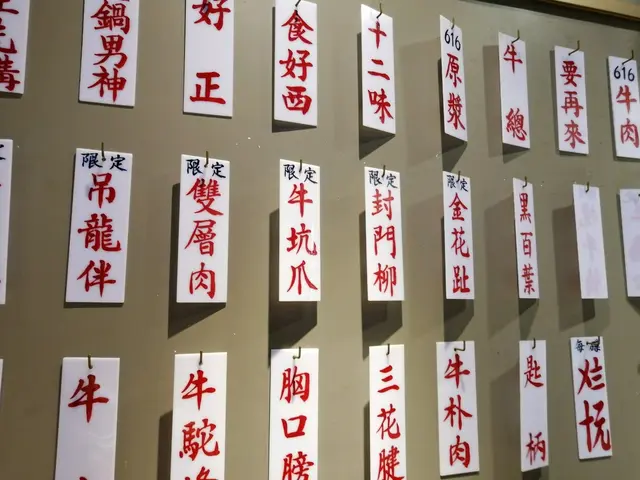 鍋男神
好正
食好西
十二味
616
原漿
牛總
要再來
616
牛肉
限定
吊龍伴
限定
雙層肉
限定
牛坑爪
限定
封門柳
限定
金花趾
黑百葉
牛
牛駝
胸口膀
三花腱
牛朴肉
匙柄